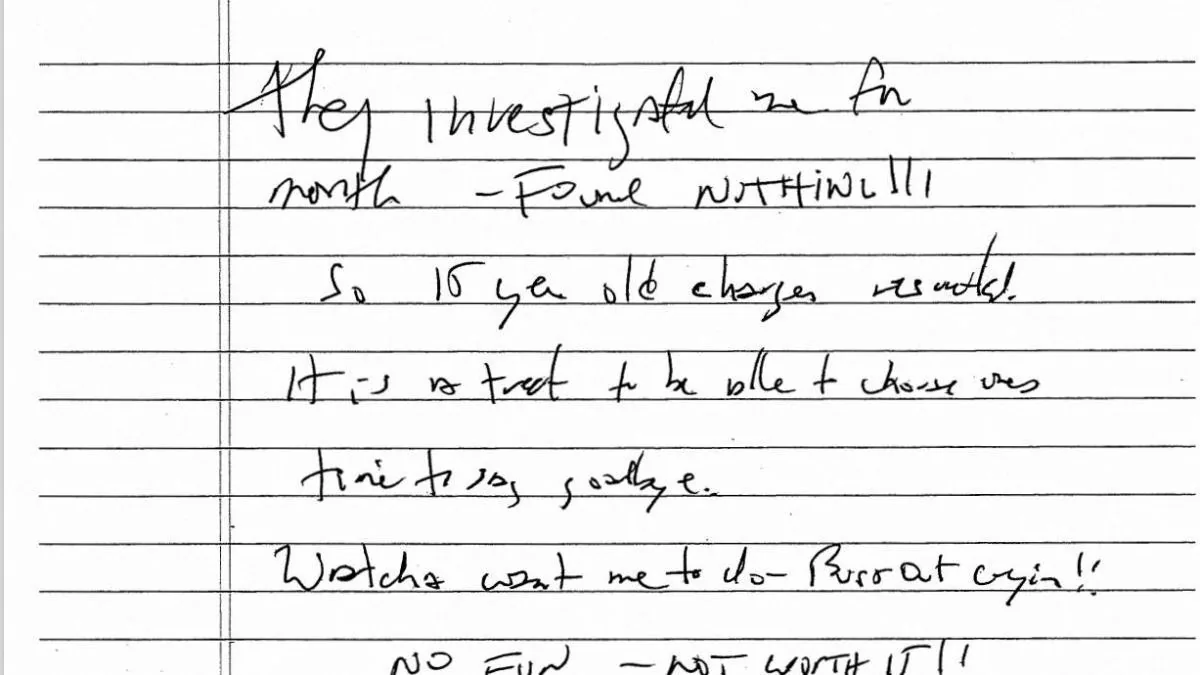 They investigated me for
month – Found NOTHING!!!
So 15 year old charges resulted!
It is a treat to be able to choose ones
time to say goodbye.
Watcha want me to do – Burst out cryin!!
NO FUN – NOT WORTH IT!!